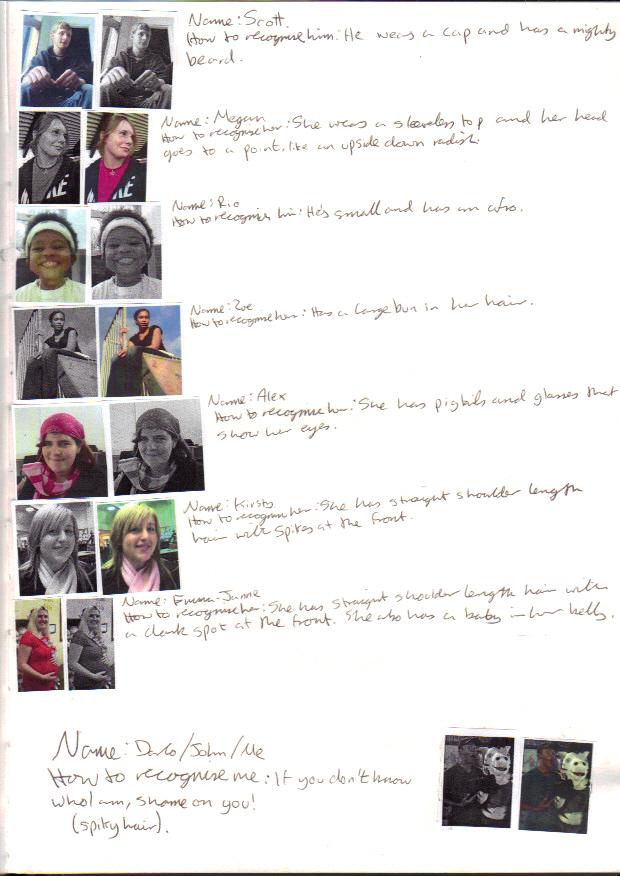 Name: Scott.
How to recognise him: He wears a cap and has a mighty
beard.
Name: Megan
How to recognise her: She wears a sleeveless top and her head
goes to a point, like an upside down radish.
Name: Rio
How to recognise him: He's small and has an afro.
Name: Zoe
How to recognise her: Has a large bun in her hair.
Name: Alex
How to recognise her: She has pigtails and glasses that
show her eyes.
Name: Kirsty
How to recognise her: She has straight shoulder length
hair with spikes at the front.
Name: Emma-Jayne
How to recognise her: She has straight shoulder length hair with
a dark spot at the front. She also has a baby in her belly.
Name: /John/Me
How to recognise me: If you don't know
who I am, shame on you!
(spiky hair).